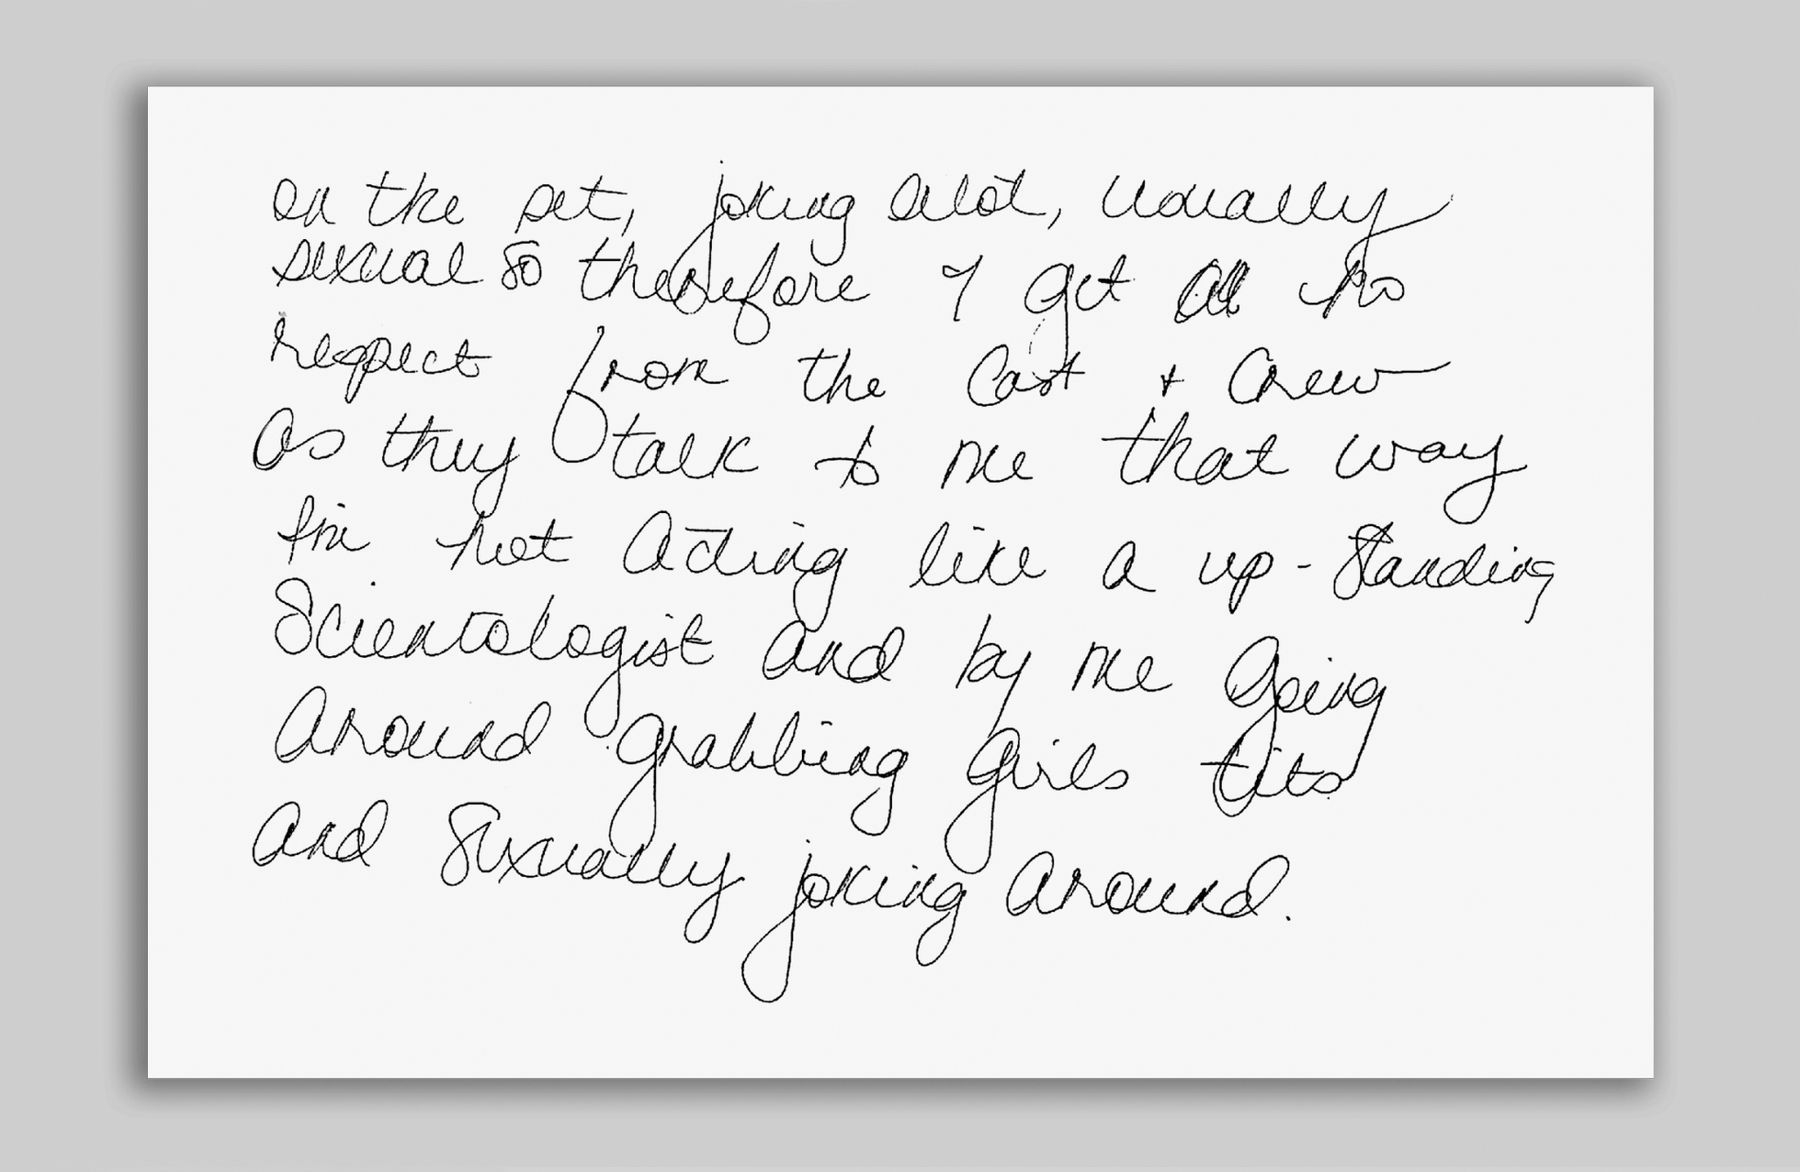 on the set, joking alot, usually
sexual so therefore I get all no
respect from the Cast + Crew
as they talk to me that way
I'm not acting like a up-standing
Scientologist and by me going
around grabbing girls tits
and sexually joking around.